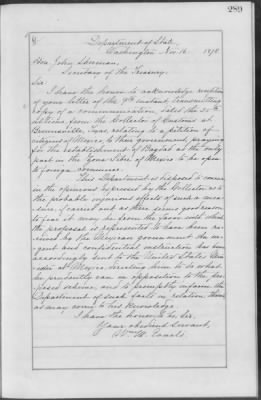 289
Department of State,
Washington Nov. 16 1878
Hon John Sherman,
Secretary of the Treasury.
Sir:
I have the honor to acknowledge reception
of your letter of the 9th instant, transmitting
copy of a communication dated the
instant, from the Collector of Customs at
Brownsville, Texas, relating to a petition of
citizens of Mexico, to their government, praying
for the establishment of Bagdad as the only
port in the Zona Libre of Mexico to be open
to foreign commerce.
This Department is disposed to concur
in the opinions expressed by the Collector as to
the probable injurious effects of such a mea-
sure, if carried out, as there seems good reason
to fear it may be, from the favor with which
the proposal is represented to have been re-
ceived by the Mexican government. An ur-
gent and confidential instruction has been
accordingly sent to the United States
at Mexico, directing him to do what
he prudently can in opposition to the pro-
posed scheme, and to promptly inform the
Department of such facts in relation thereto
as may come to his knowledge.
I have the honor to be, Sir,
Your obedient servant,
Wm. M. Evarts.